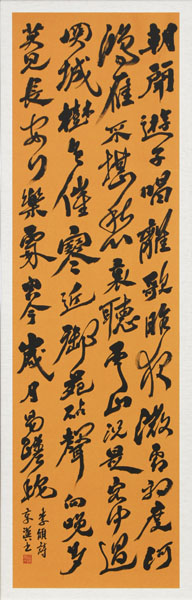 朝聞遊子唱離歌昨夜微霜初度河
鴻雁不堪愁裏聽雲山況是客中過
關城樹色催寒近御苑砧聲向晚多
莫見長安行樂處空令歲月易蹉跎
李頎詩
書